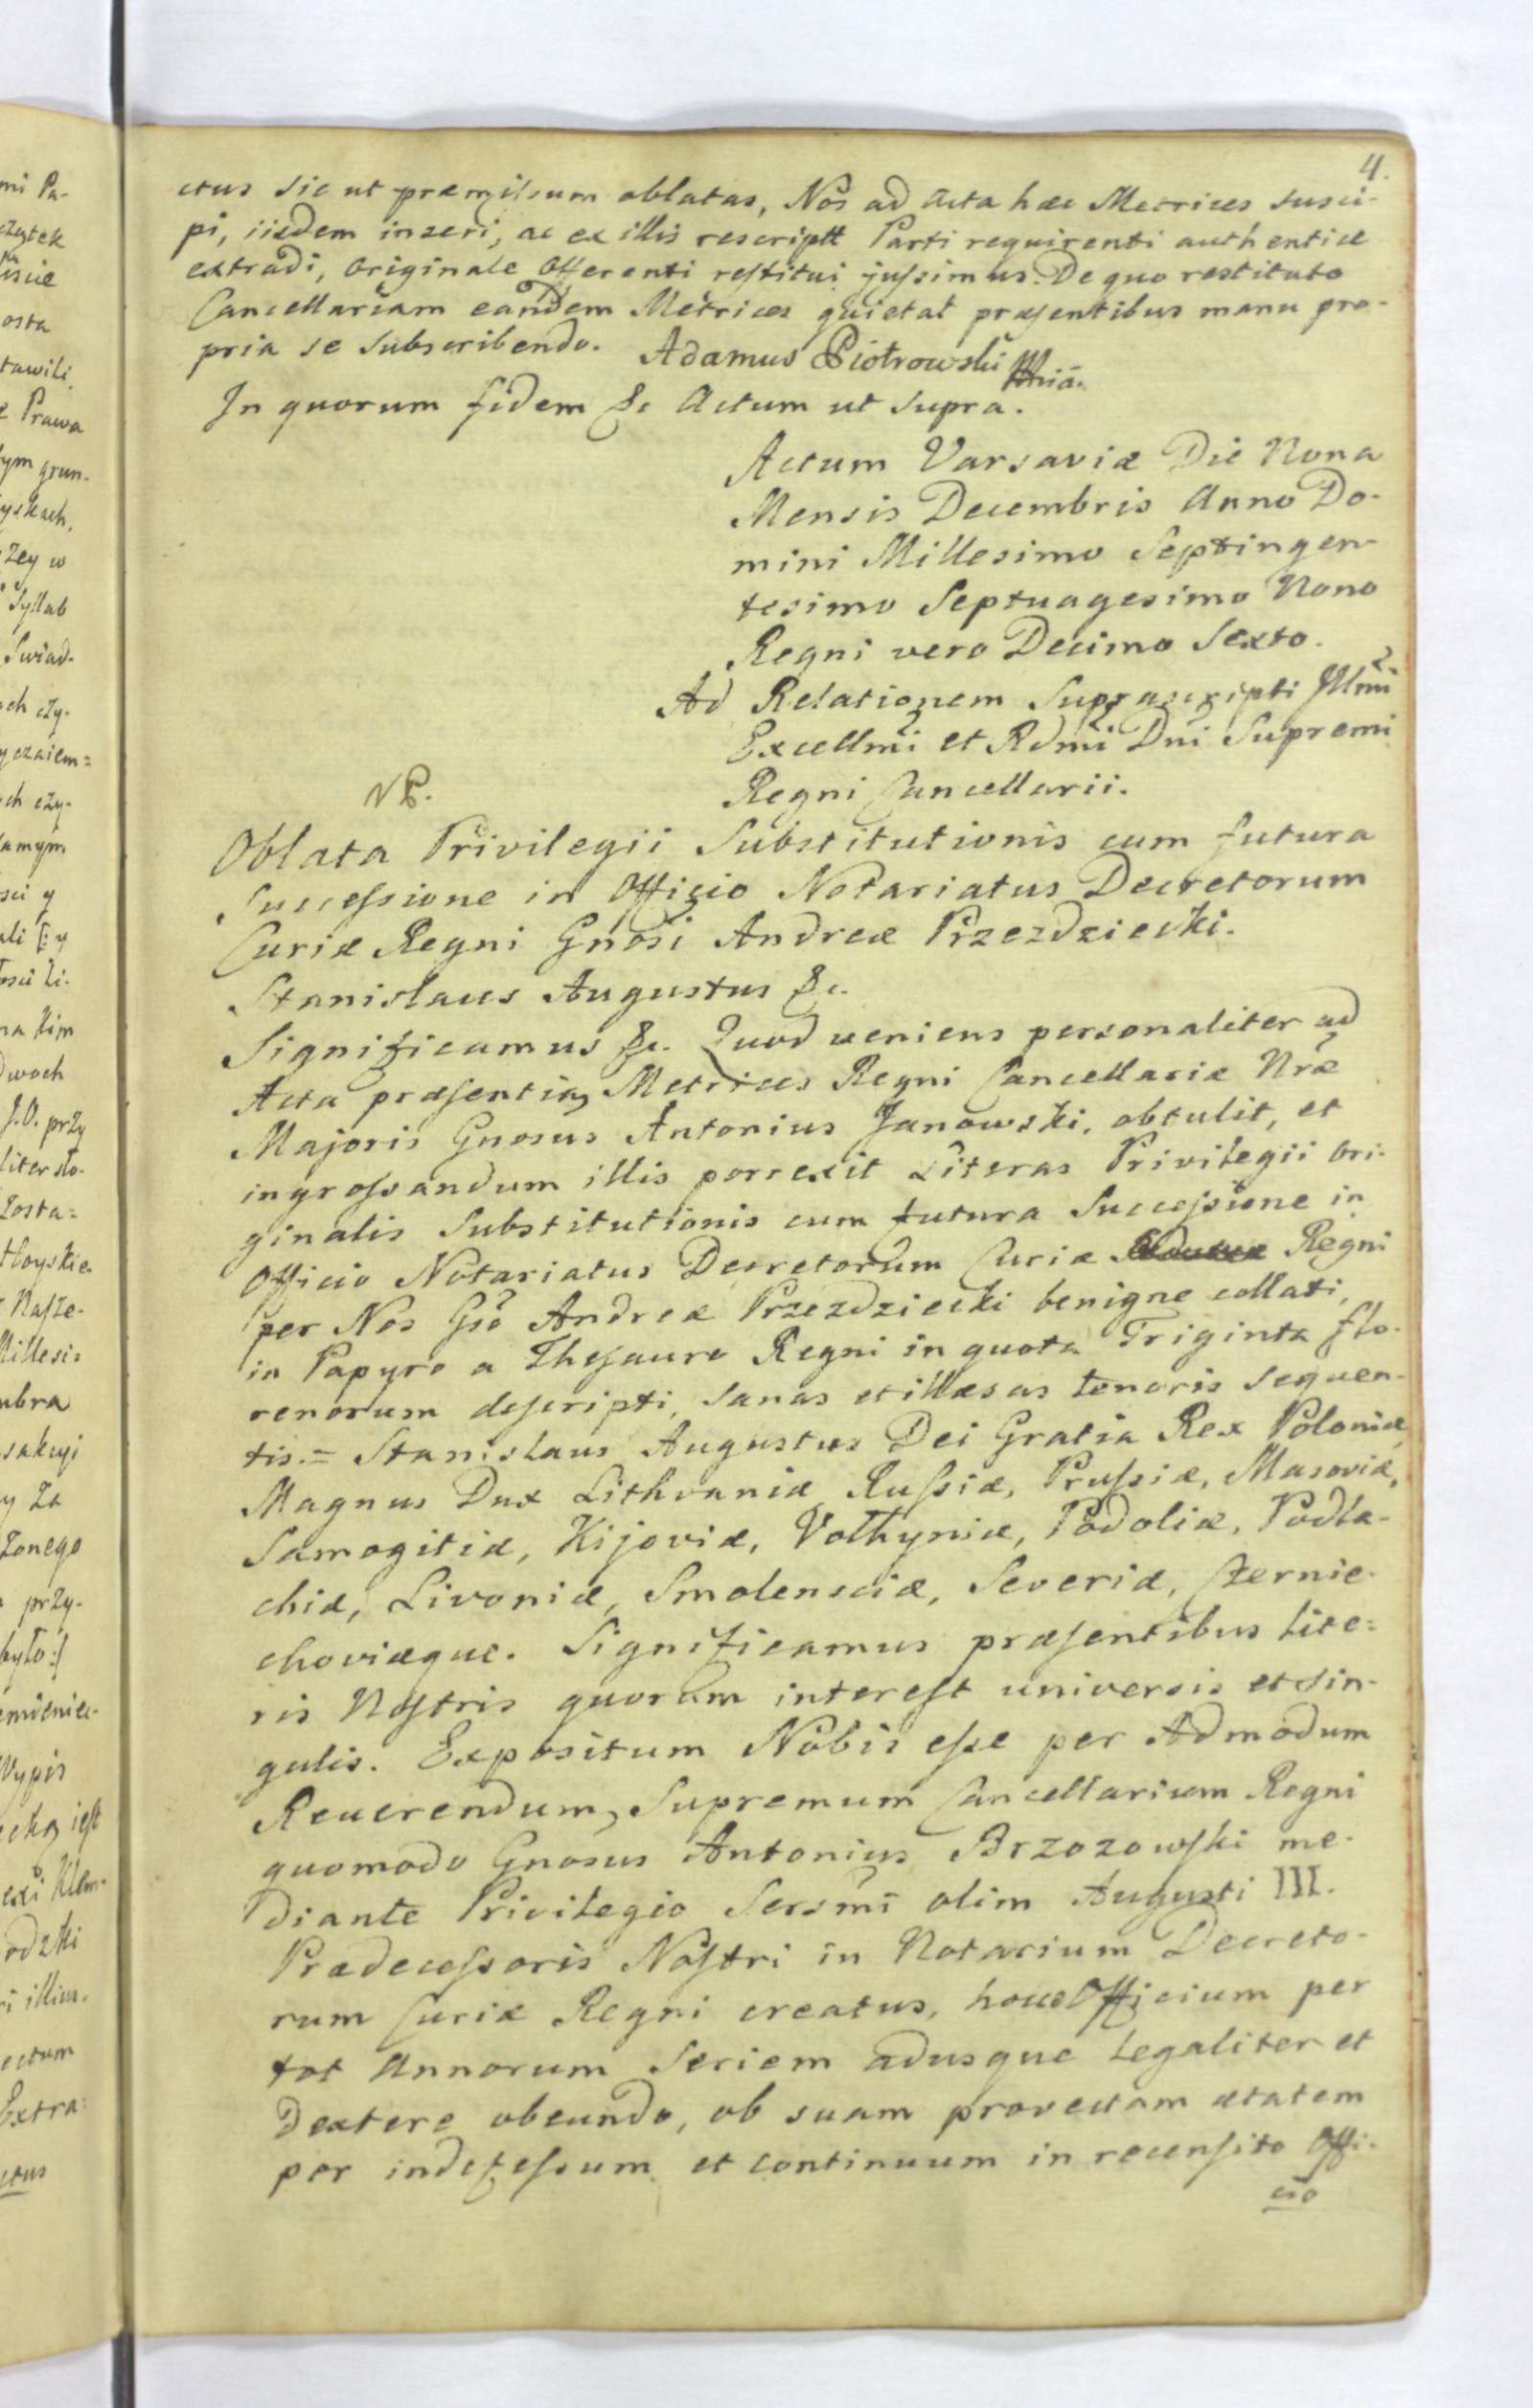 4.
ctus sic ut præmissum oblatas, Nos ad Acta hæc Metrices susci-
pi, iisdem inseri, ac ex illis rescriptt Parti requirenti authentice
extradi, Originale Offerenti restitui jussimus. De quo restituto
Cancellariam eandem Metrices quietat præsentibus manu pro-
pria se subscribendo. Adamus Piotrowski
In quorum fidem &c Actum ut supra.
Actum Varsaviæ Die Nona
Mensis Decembris Anno Do-
mini Millesimo Septingen-
tesimo Septuagesimo Nono
Regni vero Decimo Sexto.
Ad Relationem Suprascripti Illmi
Excellmi et Rdmi Dni Supremi
Regni Cancellarii.
NP.
Oblata Privilegii Substitutionis cum futura
Successione in Officio Notariatus Decretorum
Curiæ Regni Gnosi Andreæ Przezdziecki.
Stanislaus Augustus &c.
Significamus &c. Quod veniens personaliter ad
Acta præsentia Metrices Regni Cancellariæ Nræ
Majoris Gnosus Antonius Janowski, obtulit, et
ingrossandum illis porrexit Literas Privilegii ori-
ginalis Substitutionis cum futura Successione in
Officio Notariatus Decretorum Curiæ Regni
per Nos Gso Andreæ Przezdziecki benigne collati,
in Papyro a Thesauro Regni in quota Triginta flo-
renorum descripti, sanas et illæsas tenoris sequen-
tis.= Stanislaus Augustus Dei Gratia Rex Poloniæ,
Magnus Dux Lithvaniæ Russiæ, Prussiæ, Masoviæ,
Samogitiæ, Kijoviæ, Volhyniæ, Podoliæ, Podla-
chiæ, Livoniæ, Smolensciæ, Severiæ, Czernie-
choviæque. Significamus præsentibus lite=
ris Nostris quorum interest universis et sin-
gulis. Expositum Nobis esse per Admodum
Reverendum, Supremum Cancellarium Regni
quomodo Gnosus Antonius Brzozowski me-
diante Privilegio Sersmi olim Augusti III.
Prædecessoris Nostri in Notarium Decreto-
rum Curiæ Regni creatus, hocce Officium per
tot Annorum Seriem adusque legaliter et
dextere obeundo, ob suam provectam ætatem
per indefessum et continuum in recensito Offi-
cio